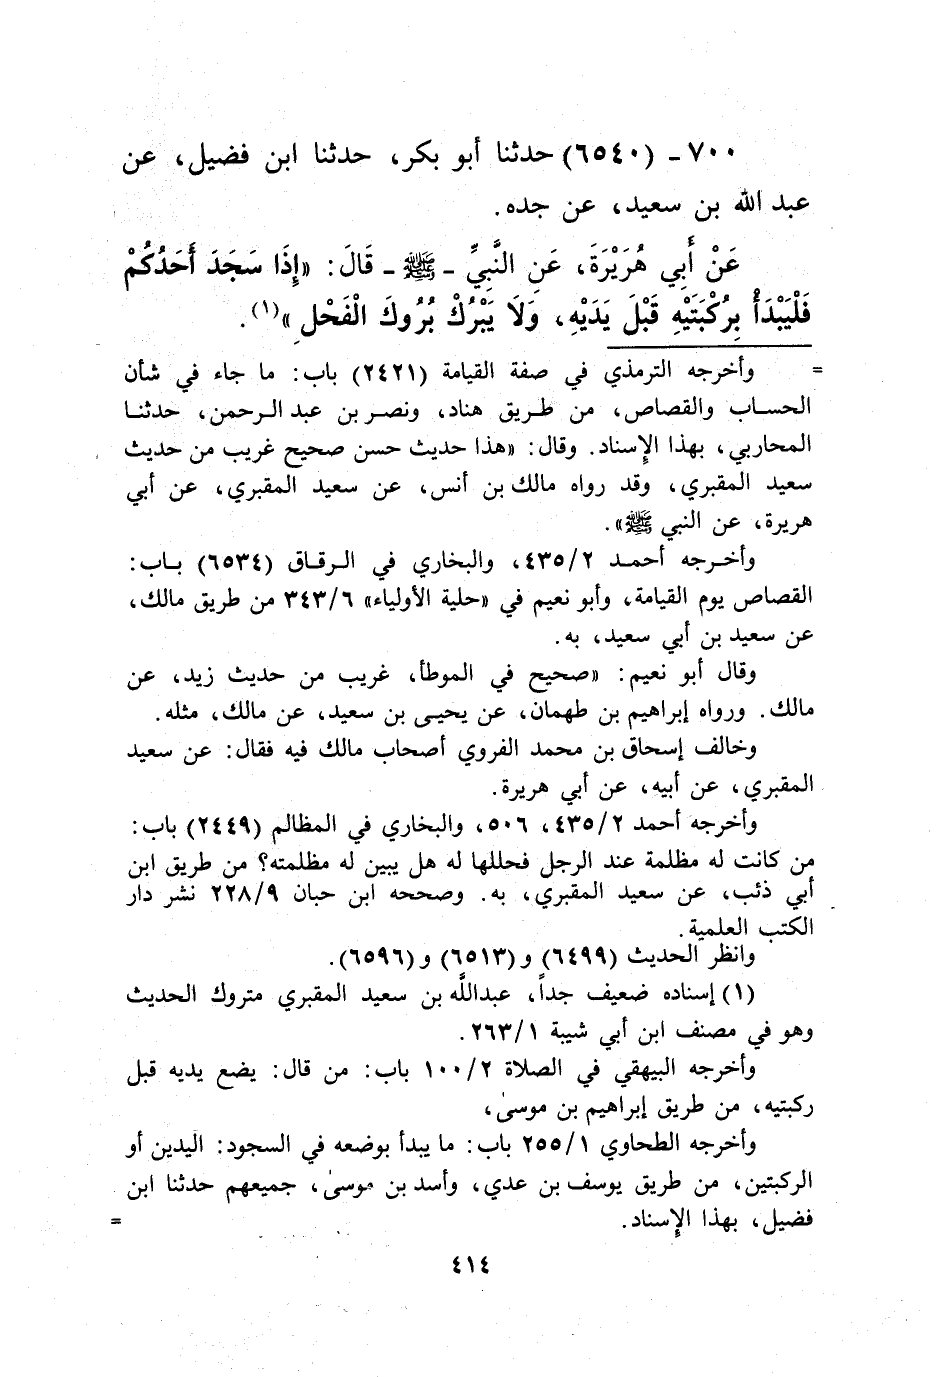 ٧٠٠ - (٦٥٤٠) حدثنا أبو بكر، حدثنا ابن فضيل، عن
عبد الله بن سعيد، عن جده.
عَنْ أَبِي هُرَيْرَةَ، عَنِ النَّبِيِّ - ﷺ - قَالَ: «إِذَا سَجَدَ أَحَدُكُمْ
فَلْيَبْدَأْ بِرُكْبَتَيْهِ قَبْلَ يَدَيْهِ، وَلَا يَبْرُكْ بُرُوكَ الْفَحْلِ»(١).
= وأخرجه الترمذي في صفة القيامة (٢٤٢١) باب: ما جاء في شأن
الحساب والقصاص، من طريق هناد، ونصر بن عبد الرحمن، حدثنا
المحاربي، بهذا الإسناد. وقال: «هذا حديث حسن صحيح غريب من حديث
سعيد المقبري، وقد رواه مالك بن أنس، عن سعيد المقبري، عن أبي
هريرة، عن النبي ﷺ».
وأخرجه أحمد ٤٣٥/٢، والبخاري في الرقاق (٦٥٣٤) باب:
القصاص يوم القيامة، وأبو نعيم في «حلية الأولياء» ٣٤٣/٦ من طريق مالك،
عن سعيد بن أبي سعيد، به.
وقال أبو نعيم: «صحيح في الموطأ، غريب من حديث زيد، عن
مالك. ورواه إبراهيم بن طهمان، عن يحيى بن سعيد، عن مالك، مثله.
وخالف إسحاق بن محمد الفروي أصحاب مالك فيه فقال: عن سعيد
المقبري، عن أبيه، عن أبي هريرة.
وأخرجه أحمد ٤٣٥/٢، ٥٠٦، والبخاري في المظالم (٢٤٤٩) باب:
من كانت له مظلمة عند الرجل فحللها له هل يبين له مظلمته؟ من طريق ابن
أبي ذئب، عن سعيد المقبري، به. وصححه ابن حبان ٢٢٨/٩ نشر دار
الكتب العلمية.
وانظر الحديث (٦٤٩٩) و(٦٥١٣) و(٦٥٩٦).
(١) إسناده ضعيف جداً، عبدالله بن سعيد المقبري متروك الحديث
وهو في مصنف ابن أبي شيبة ٢٦٣/١.
وأخرجه البيهقي في الصلاة ١٠٠/٢ باب: من قال: يضع يديه قبل
ركبتيه، من طريق إبراهيم بن موسىٰ،
وأخرجه الطحاوي ٢٥٥/١ باب: ما يبدأ بوضعه في السجود: اليدين أو
الركبتين، من طريق يوسف بن عدي، وأسد بن موسىٰ، جميعهم حدثنا ابن
فضيل، بهذا الإسناد. =
٤١٤